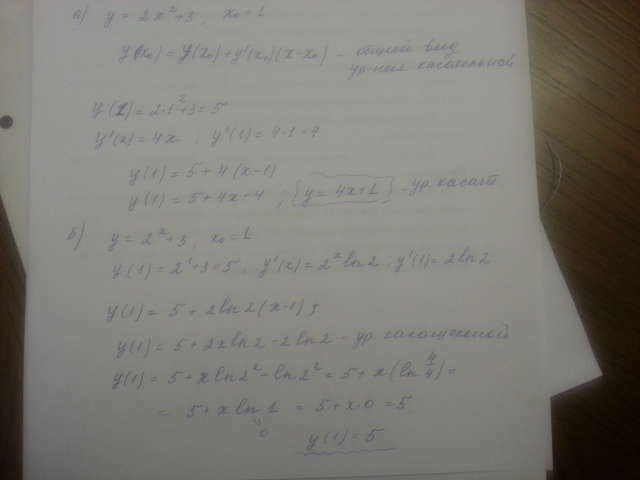 а) y = 2x²+3, x₀=1
y(x₀) = y(x₀)+y'(x₀)(x-x₀) - общий вид
ур-ния касательной
y(1)=2·1²+3=5
y'(x)=4x, y'(1)=4·1=4
y(1)=5+4(x-1)
y(1)=5+4x-4, [y=4x+1] - ур. касат
б) y=2ˣ+3, x₀=1
y(1)=2¹+3=5, y'(x)=2ˣln2, y'(1)=2ln2
y(1)= 5+2ln2(x-1);
y(1)= 5+2xln2-2ln2 - ур касательной
y(1)= 5+xln2²-ln2² = 5+x(ln 4/4)=
= 5+xln1 = 5+x·0 =5
0
y(1)=5